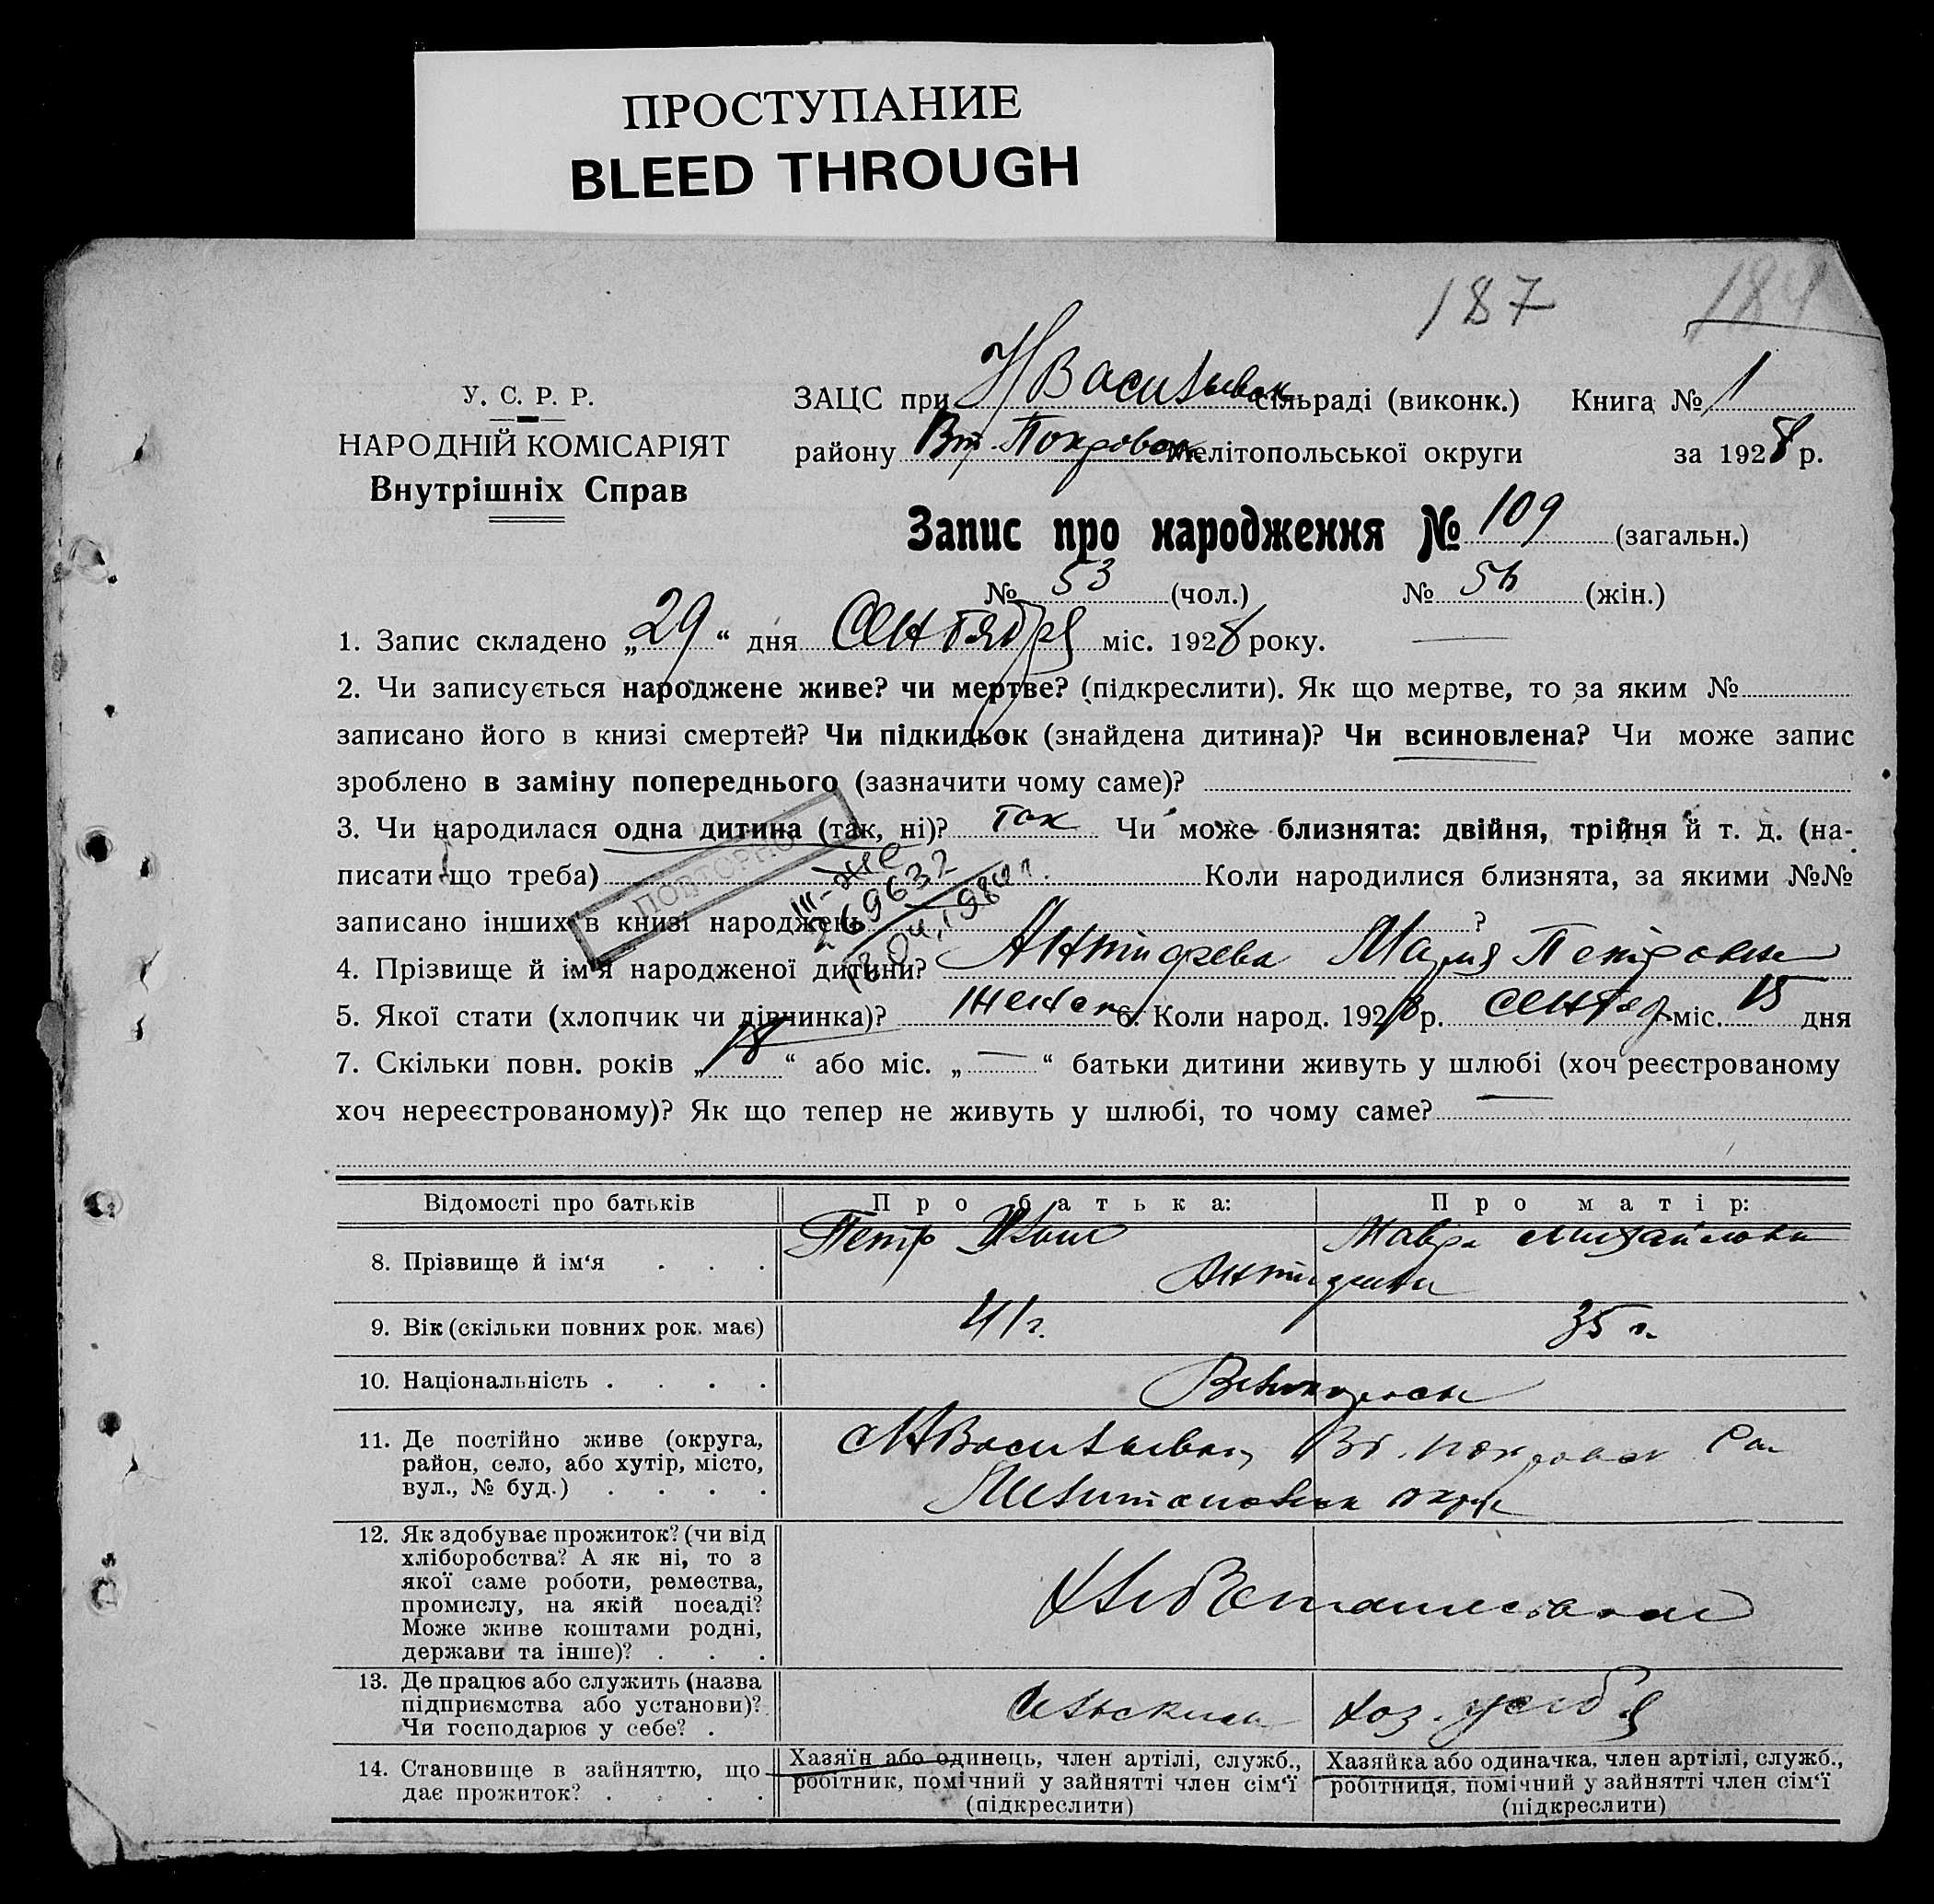 ПРОСТУПАНИЕ
BLEED THROUGH
187 184
У. С. Р. Р.
НАРОДНІЙ КОМІСАРІЯТ
Внутрішніх Справ
ЗАЦС при НВасильевск сільраді (виконк.) Книга № 1
району Вт. Покровск Мелітопольської округи за 1928 р.
Запис про народження № 109 (загальн.)
№ 53 (чол.) № 56 (жін.)
1. Запис складено „29“ дня Сентября міс. 1928 року.
2. Чи записується народжене живе? чи мертве? (підкреслити). Як що мертве, то за яким №
записано його в книзі смертей? Чи підкидьок (знайдена дитина)? Чи всиновлена? Чи може запис
зроблено в заміну попереднього (зазначити чому саме)?
3. Чи народилася одна дитина (так, ні)? так Чи може близнята: двійня, трійня й т. д. (на-
писати що треба) Коли народилися близнята, за якими №№
записано інших в книзі народжень ?
ПОВТОРНО
III-жс
269632
4. Прізвище й ім'я народженої дитини? Мария Петровна
5. Якої стати (хлопчик чи дівчинка)? 6. Коли народ. 1928 р. Сентяб міс. 15 дня
7. Скільки повн. років „18“ або міс. „—“ батьки дитини живуть у шлюбі (хоч реєстрованому
хоч нереєстрованому)? Як що тепер не живуть у шлюбі, то чому саме? —
Відомості про батьків Про батька: Про матір:
8. Прізвище й ім‘я . . . Петр Михайловна
9. Вік (скільки повних рок. має) 41 г. 35 г.
10. Національність . . . . Великоросы
11. Де постійно живе (округа,
район, село, або хутір, місто,
вул., № буд.) . . . .
НВасильевка, Вт. Покровск Ра
Мелитопольск округ
12. Як здобуває прожиток? (чи від
хліборобства? А як ні, то з
якої саме роботи, ремества,
промислу, на якій посаді?
Може живе коштами родні,
держави та інше)? . . .
Хлебопашеством
13. Де працює або служить (назва
підприємства або установи)?
Чи господарює у себе? .
хоз. у себя
14. Становище в зайняттю, що
дає прожиток? . . . .
Хазяїн або одинець, член артілі, служб.,
робітник, помічний у зайнятті член сім‘ї
(підкреслити)
Хазяйка або одиначка, член артілі, служб.,
робітниця, помічний у зайнятті член сім‘ї
(підкреслити)